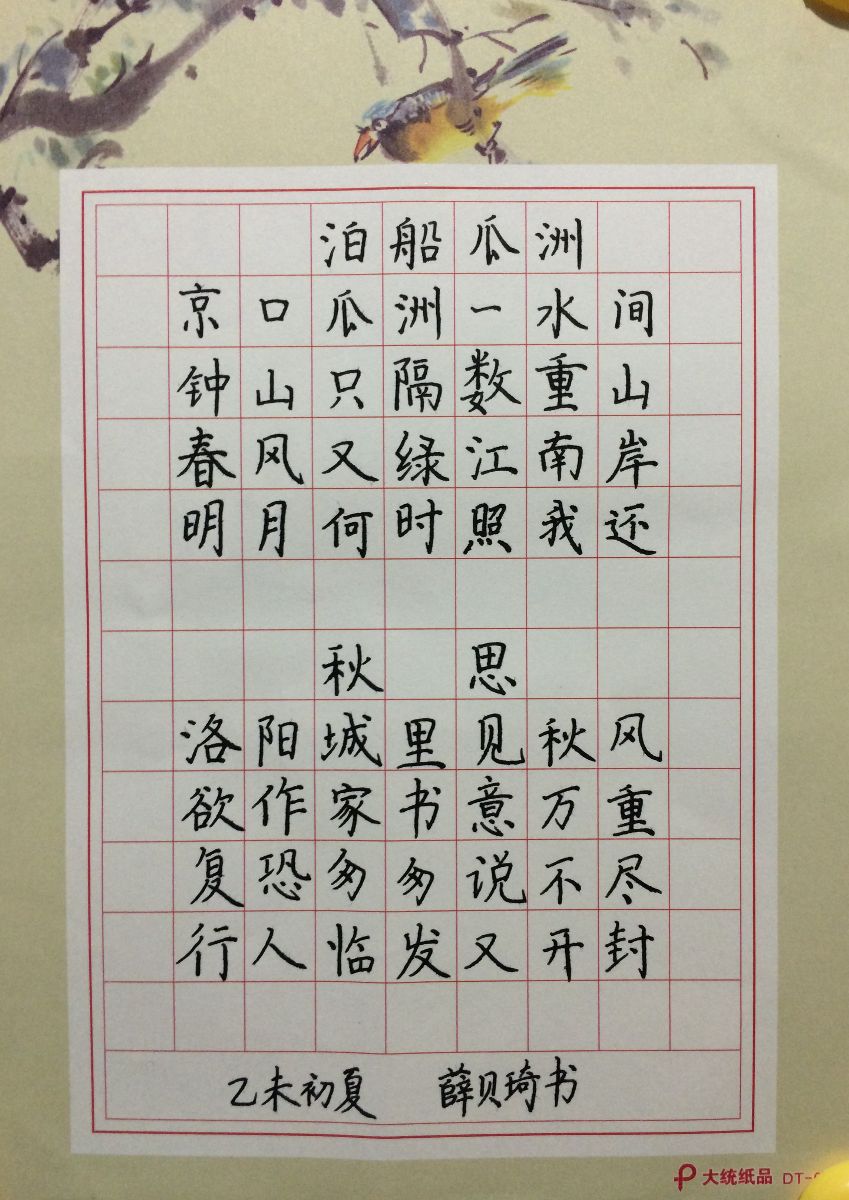 泊船瓜洲
京口瓜洲一水间
钟山只隔数重山
春风又绿江南岸
明月何时照我还
秋 思
洛阳城里见秋风
欲作家书意万重
复恐匆匆说不尽
行人临发又开封
乙未初夏 薛贝琦书
大统纸品 DT-